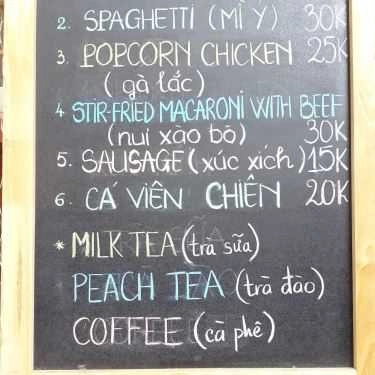 2. SPAGHETTI (MÌ Ý) 30K
3. POPCORN CHICKEN 25K
(gà lắc)
4 STIR-FRIED MACARONI WITH BEEF
(nui xào bò) 30K
5. SAUSAGE (xúc xích) 15K
6. CÁ VIÊN CHIÊN 20K
* MILK TEA (trà sữa)
PEACH TEA (trà đào)
COFFEE (cà phê)